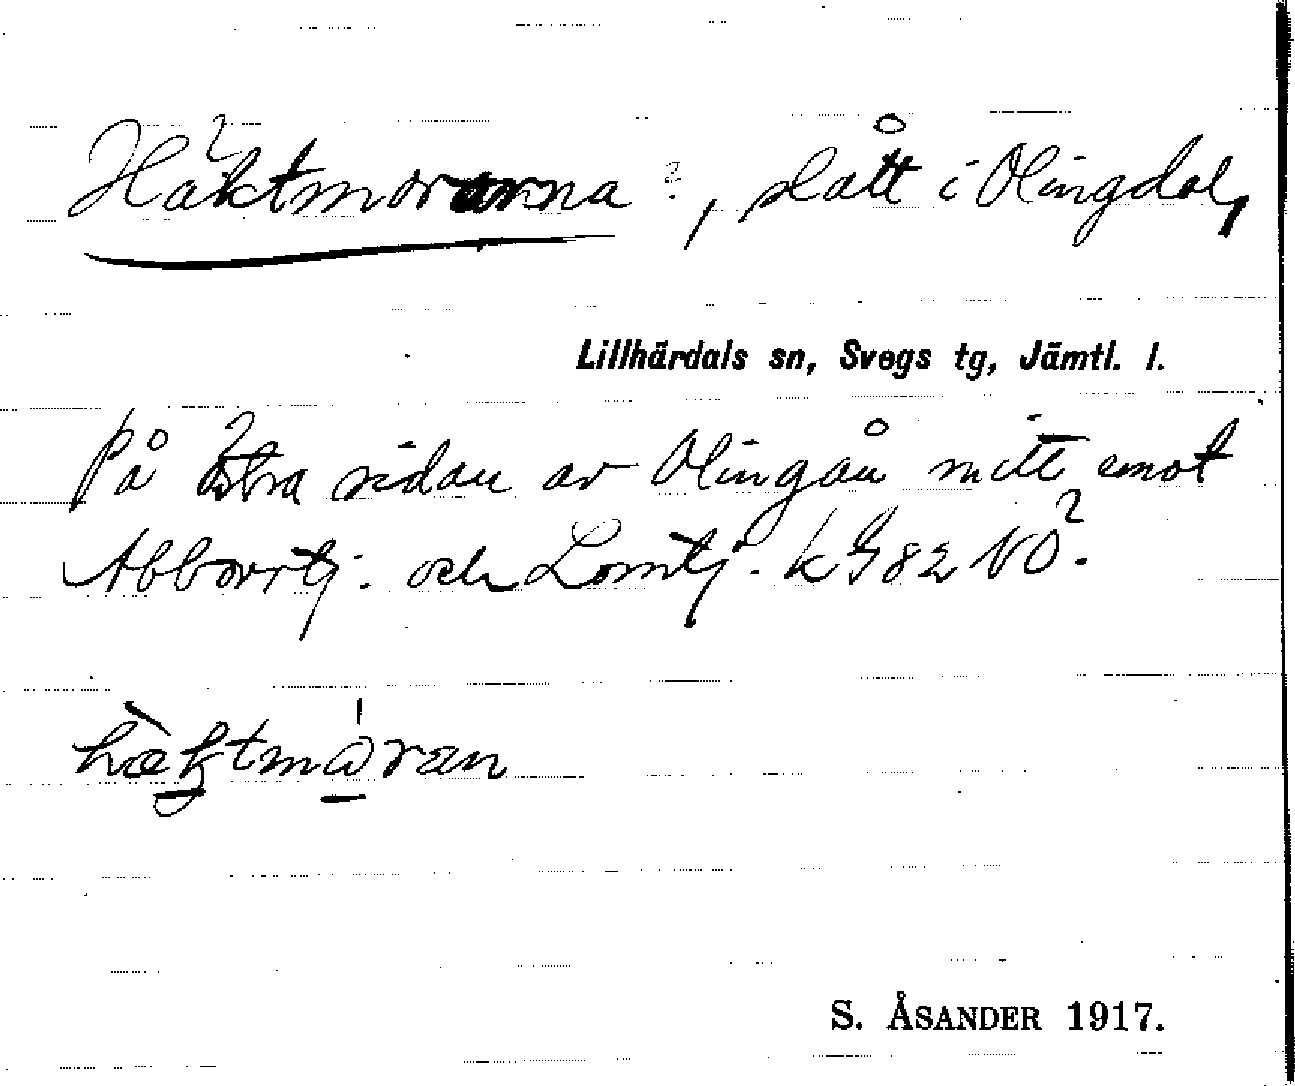 Häktmorarna ?, slått i Olingdal,
Lillhärdals sn, Svegs tg, Jämtl. l.
På östra sidan av Olingån mitt emot
Abborrtj. och Lomtj. k G 82 NO.
hæktmoran
S. ÅSANDER 1917.